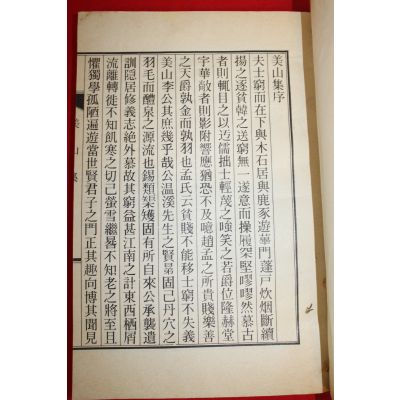 美山集序
夫士窮而在下與木石居與鹿豕遊蓽門蓬戶炊烟斷續
揚之逐貧韓之送窮無一遂意而操履深堅嘐嘐然慕古
者則輒目之以迂儒拙士輕蔑之强笑之若爵位隆赫堂
宇華敞者則影附響應猶恐不及噫趙孟之所貴賤樂善
之天爵孰金而孰羽也孟氏云貧賤不能移士窮不失義
美山李公其庶幾乎哉公温溪先生之賢裔固已丹穴之
羽毛而醴泉之源流也錫類絜矱固有所自來公承襲遺
訓隱居修義志絶外慕故其窮益甚江南之計東西栖屑
流離轉徙不知飢寒之切己螢雪繼晷不知老之將至且
懼獨學孤陋遍遊當世賢君子之門正其趣向博其聞見
美山集